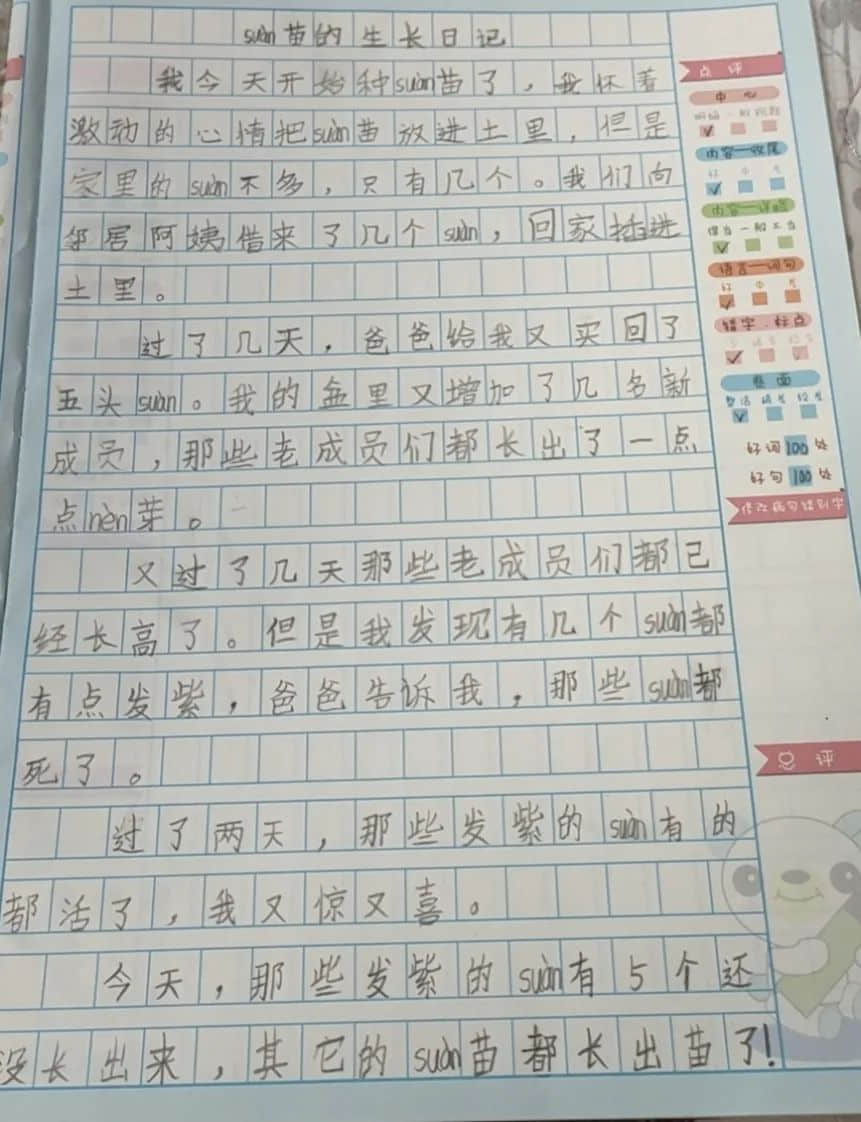 suàn苗的生长日记
我今天开始种suàn苗了，我怀着
激动的心情把suàn苗放进土里，但是
家里的suàn不多，只有几个。我们向
邻居阿姨借来了几个suàn，回家插进
土里。
过了几天，爸爸给我又买回了
五头suàn。我的盆里又增加了几名新
成员，那些老成员们都长出了一点
点nèn芽。
又过了几天那些老成员们都已
经长高了。但是我发现有几个suàn都
有点发紫，爸爸告诉我，那些suàn都
死了。
过了两天，那些发紫的suàn有的
都活了，我又惊又喜。
今天，那些发紫的suàn有5个还
没长出来，其它的suàn苗都长出苗了！
点评
中心
明确 一般
内容—收尾
好 中 差
内容—详略
得当 一般 不当
语言—词句
好 中 差
错字、标点
卷面
整洁
好词100处
好句100处
修改病句错别字
总评